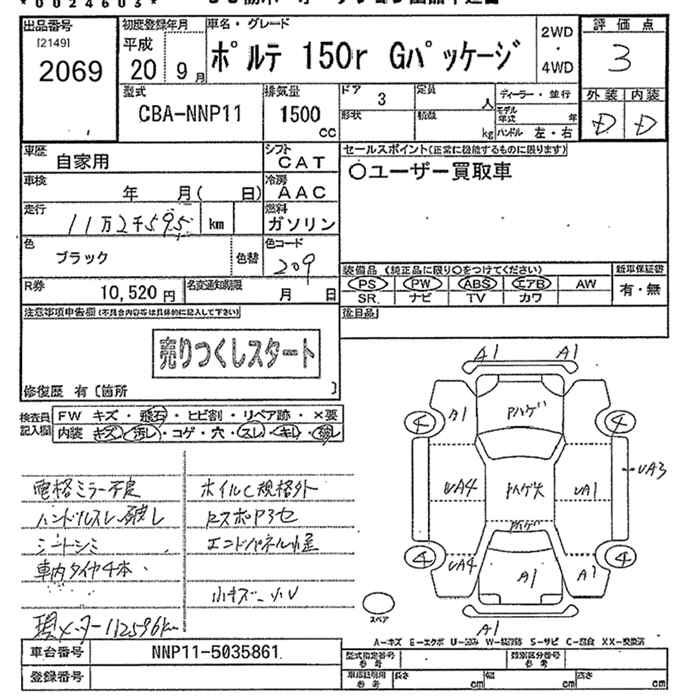 * 0024603 *
出品番号
[2149]
2069
初度登録年月
平成
20 9月
車名・グレード
ポルテ 150r Gパッケージ
2WD
・
4WD
評価点
3
外装 内装
D D
型式
CBA-NNP11
排気量
1500
cc
ドア 3
定員 人
形状
積載 kg
ディーラー・並行
モデル年式 年
ハンドル 左・右
車歴
自家用
シフト
CAT
セールスポイント(正常に機能するものに限ります)
○ユーザー買取車
車検
年 月( 日)
冷房
AAC
走行
11万2千595 km
燃料
ガソリン
色
ブラック
色替
色コード
209
R券
10,520円
名変通知期限
月 日
装備品 (純正品に限り○をつけてください)
PS PW ABS エアB AW
SR ナビ TV カワ
新車保証書
有・無
後日品
注意事項申告欄(不具合内容等は具体的に記入して下さい)
売りつくしスタート
修復歴 有〔箇所 〕
検査員記入欄
FW キズ・飛石・ヒビ割・リペア跡・×要
内装 キズ・汚レ・コゲ・穴・スレ・キレ・破レ
電格ミラー不良
ハンドルスレ、破レ
シートシミ
車内タイヤ4本
現メーター112596km
ホイルC規格外
エンドパネル小歪
小キズ、小U
A1 A1
A1
Pハゲ
4 4
UA4
UA1
UA3
Pハゲ
4 4
UA4
A1
A1
A1
スペア
A-キズ E-エクボ U-凹み W-補修跡 S-サビ C-腐食 XX-交換済
車台番号
NNP11-5035861
登録番号
型式指定番号 参考
類別区分番号 参考
車庫証明用 参考
長さ cm
幅 cm
高さ cm